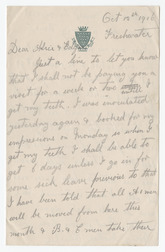 Oct 10th 1916
Freshwater
Dear Alice &
Just a line to let you know
that I shall not be paying you a
visit for a week or two
get my teeth. I was inoculated
yesterday again & booked for my
impressions on Monday so when I
get my teeth I shall be able to
get 6 days unless I go in for
some sick leave previous to that
I have been told that all A1 men
will be moved from here this
month & B. & C men take their